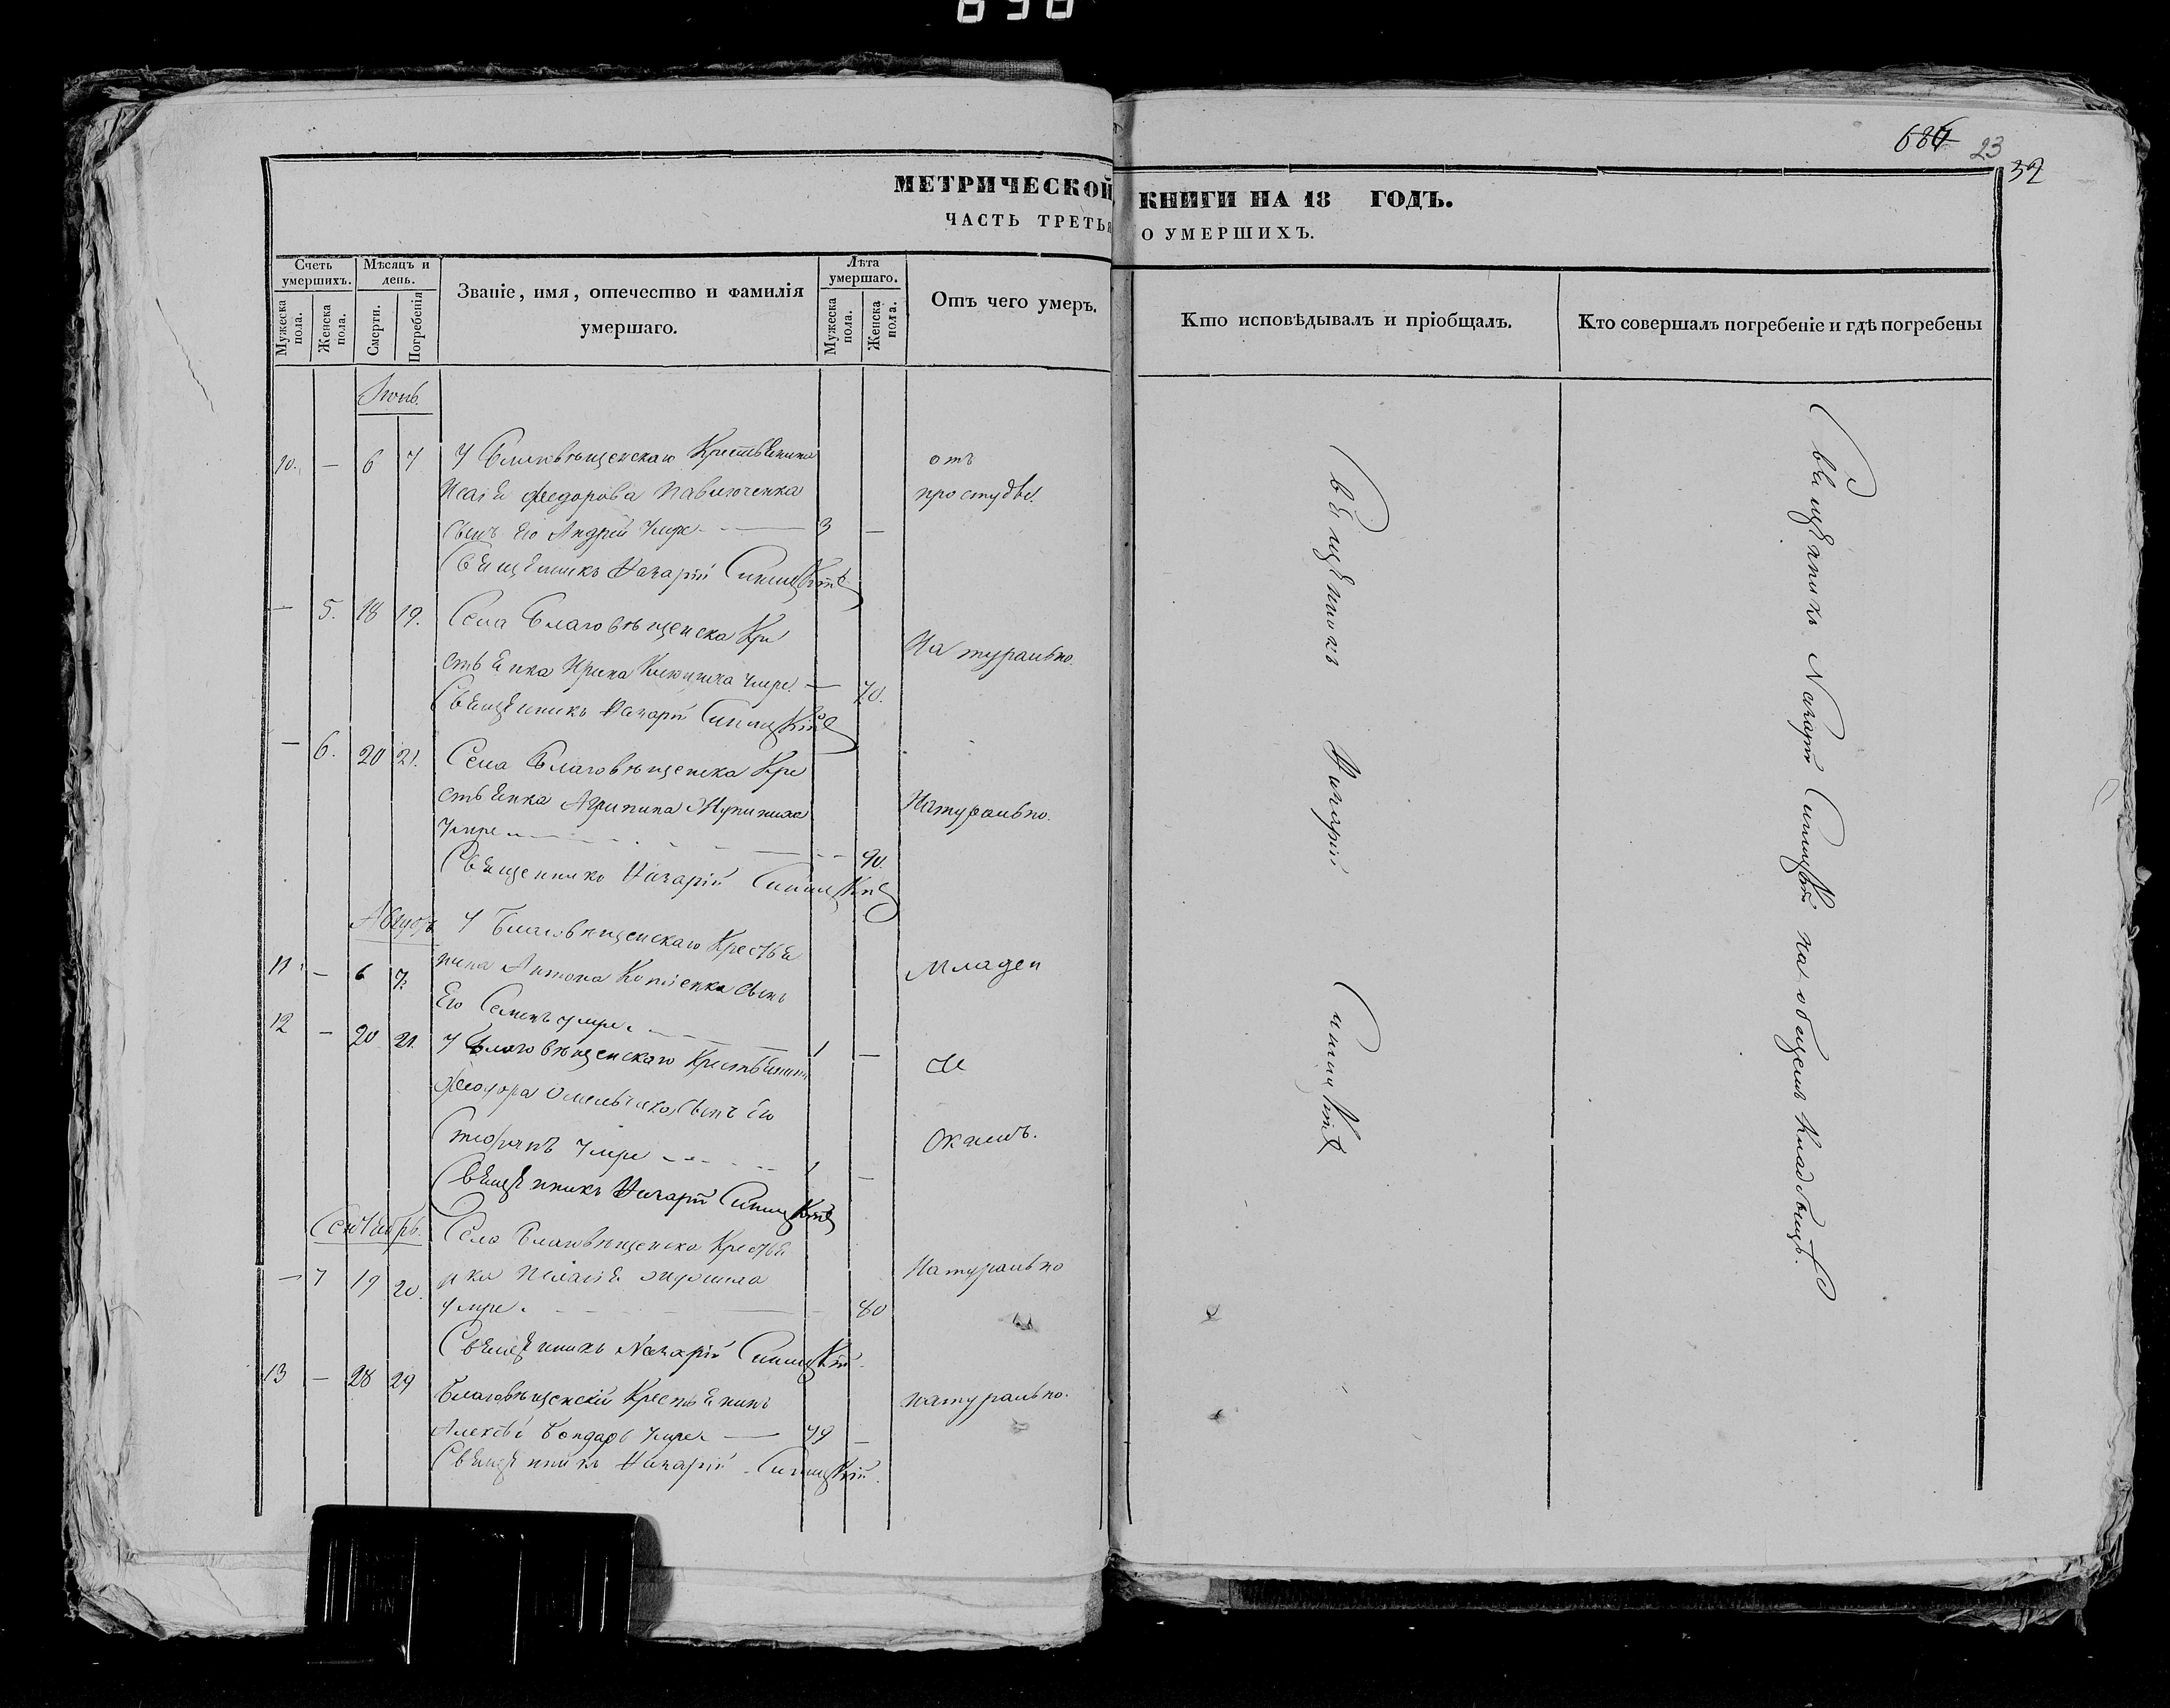 696
684 23
32
МЕТРИЧЕСКОЙ КНИГИ НА 18 ГОДЪ.
ЧАСТЬ ТРЕТЬЯ О УМЕРШИХЪ.
Счетъ умершихъ.
Мужеска пола.
Женска пола.
Мѣсяцъ и день.
Смерти.
Погребенія
Званіе, имя, отечество и фамилія умершаго.
Лѣта умершаго.
Мужеска пола.
Женска пола.
Отъ чего умеръ.
Кто исповѣдывалъ и пріобщалъ.
Кто совершалъ погребеніе и гдѣ погребены
10. — 6 7 У Благовѣщенскаго Крестьянина отъ
Исаія Федорова Павлюченка простуды.
Сынъ Его Андрій Умре 3 —
Священникъ Назарій Синицкій
— 5. 18 19. Села Благовѣщенска Кре
стьянка Ирина умре — 70. Натурально.
Священникъ Назарій Синицкій
— 6. 20 21. Села Благовѣщенска Кре
стьянка Агрипина Натурально.
Умре 90.
Священникъ Назарій Синицкій
Августъ У Благовѣщенскаго Крестья
11. — 6 7. нина Антона сынъ Младен
Его Семенъ умре. 1 —
12 — 20 21. У Благовѣщенскаго Крестьянина
Феодора Сынъ Его
Стефанъ Умре 1 —
Священникъ Назарій Синицкій
Сентябрь. Села Благовѣщенска Крестья
— 7 19 20. нка Пелагія Натурально
умре. 80
Священникъ Назарій Синицкій
13 — 28 29 Благовѣщенскій Крестьянинъ натурально.
Алексѣй Бондарь Умре — 49 —
Священникъ Назарій Синицкій.
Священникъ Назарій Синицкій
Священникъ Назарій Синицкій на общемъ кладбищѣ.